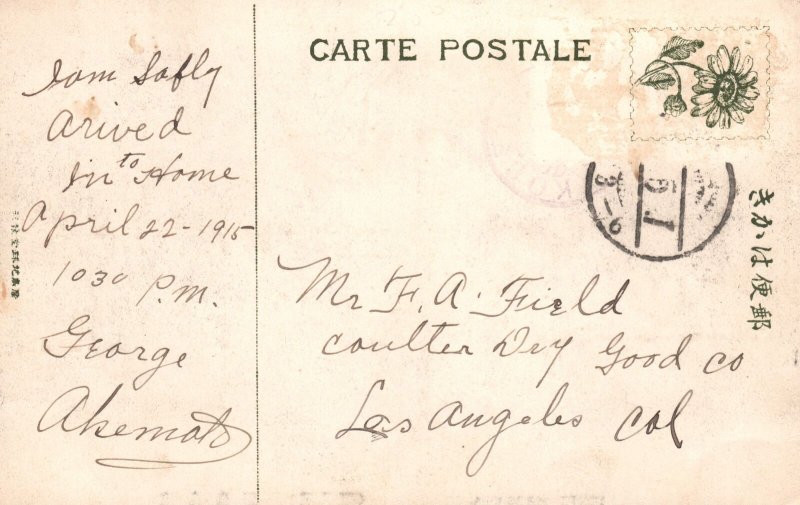 CARTE POSTALE
Iam Safly
Arived
In to Home
April 22-1915
1030 P.M.
George
Akemoto
Mr F. A. Field
coulter Dry Good co
Los Angeles Cal
きかは便郵